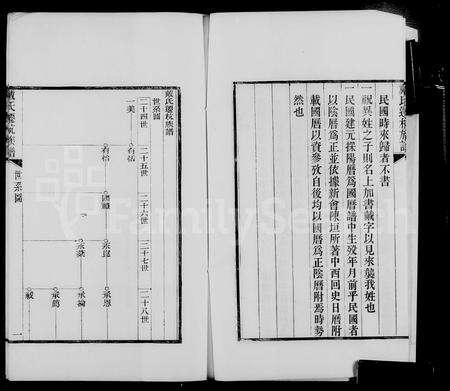 戴氏遷杭族譜
民國時來歸者不書
一祧異姓之子則名上加書戴字以見來襲我姓也
一民國建元採陽曆爲國曆譜中生殁年月前乎民國者
以陰曆爲正並依據新會陳垣所著中西回史日曆附
載國曆以資參攷自後均以國曆爲正陰曆附焉時勢
然也
戴氏遷杭族譜
世系圖
二十四世
二十五世
二十六世
二十七世
二十八世
一美
有恬
有怡
承恩
承綸
承蔭
戴氏遷杭族譜
世系圖
一
FamilySearch